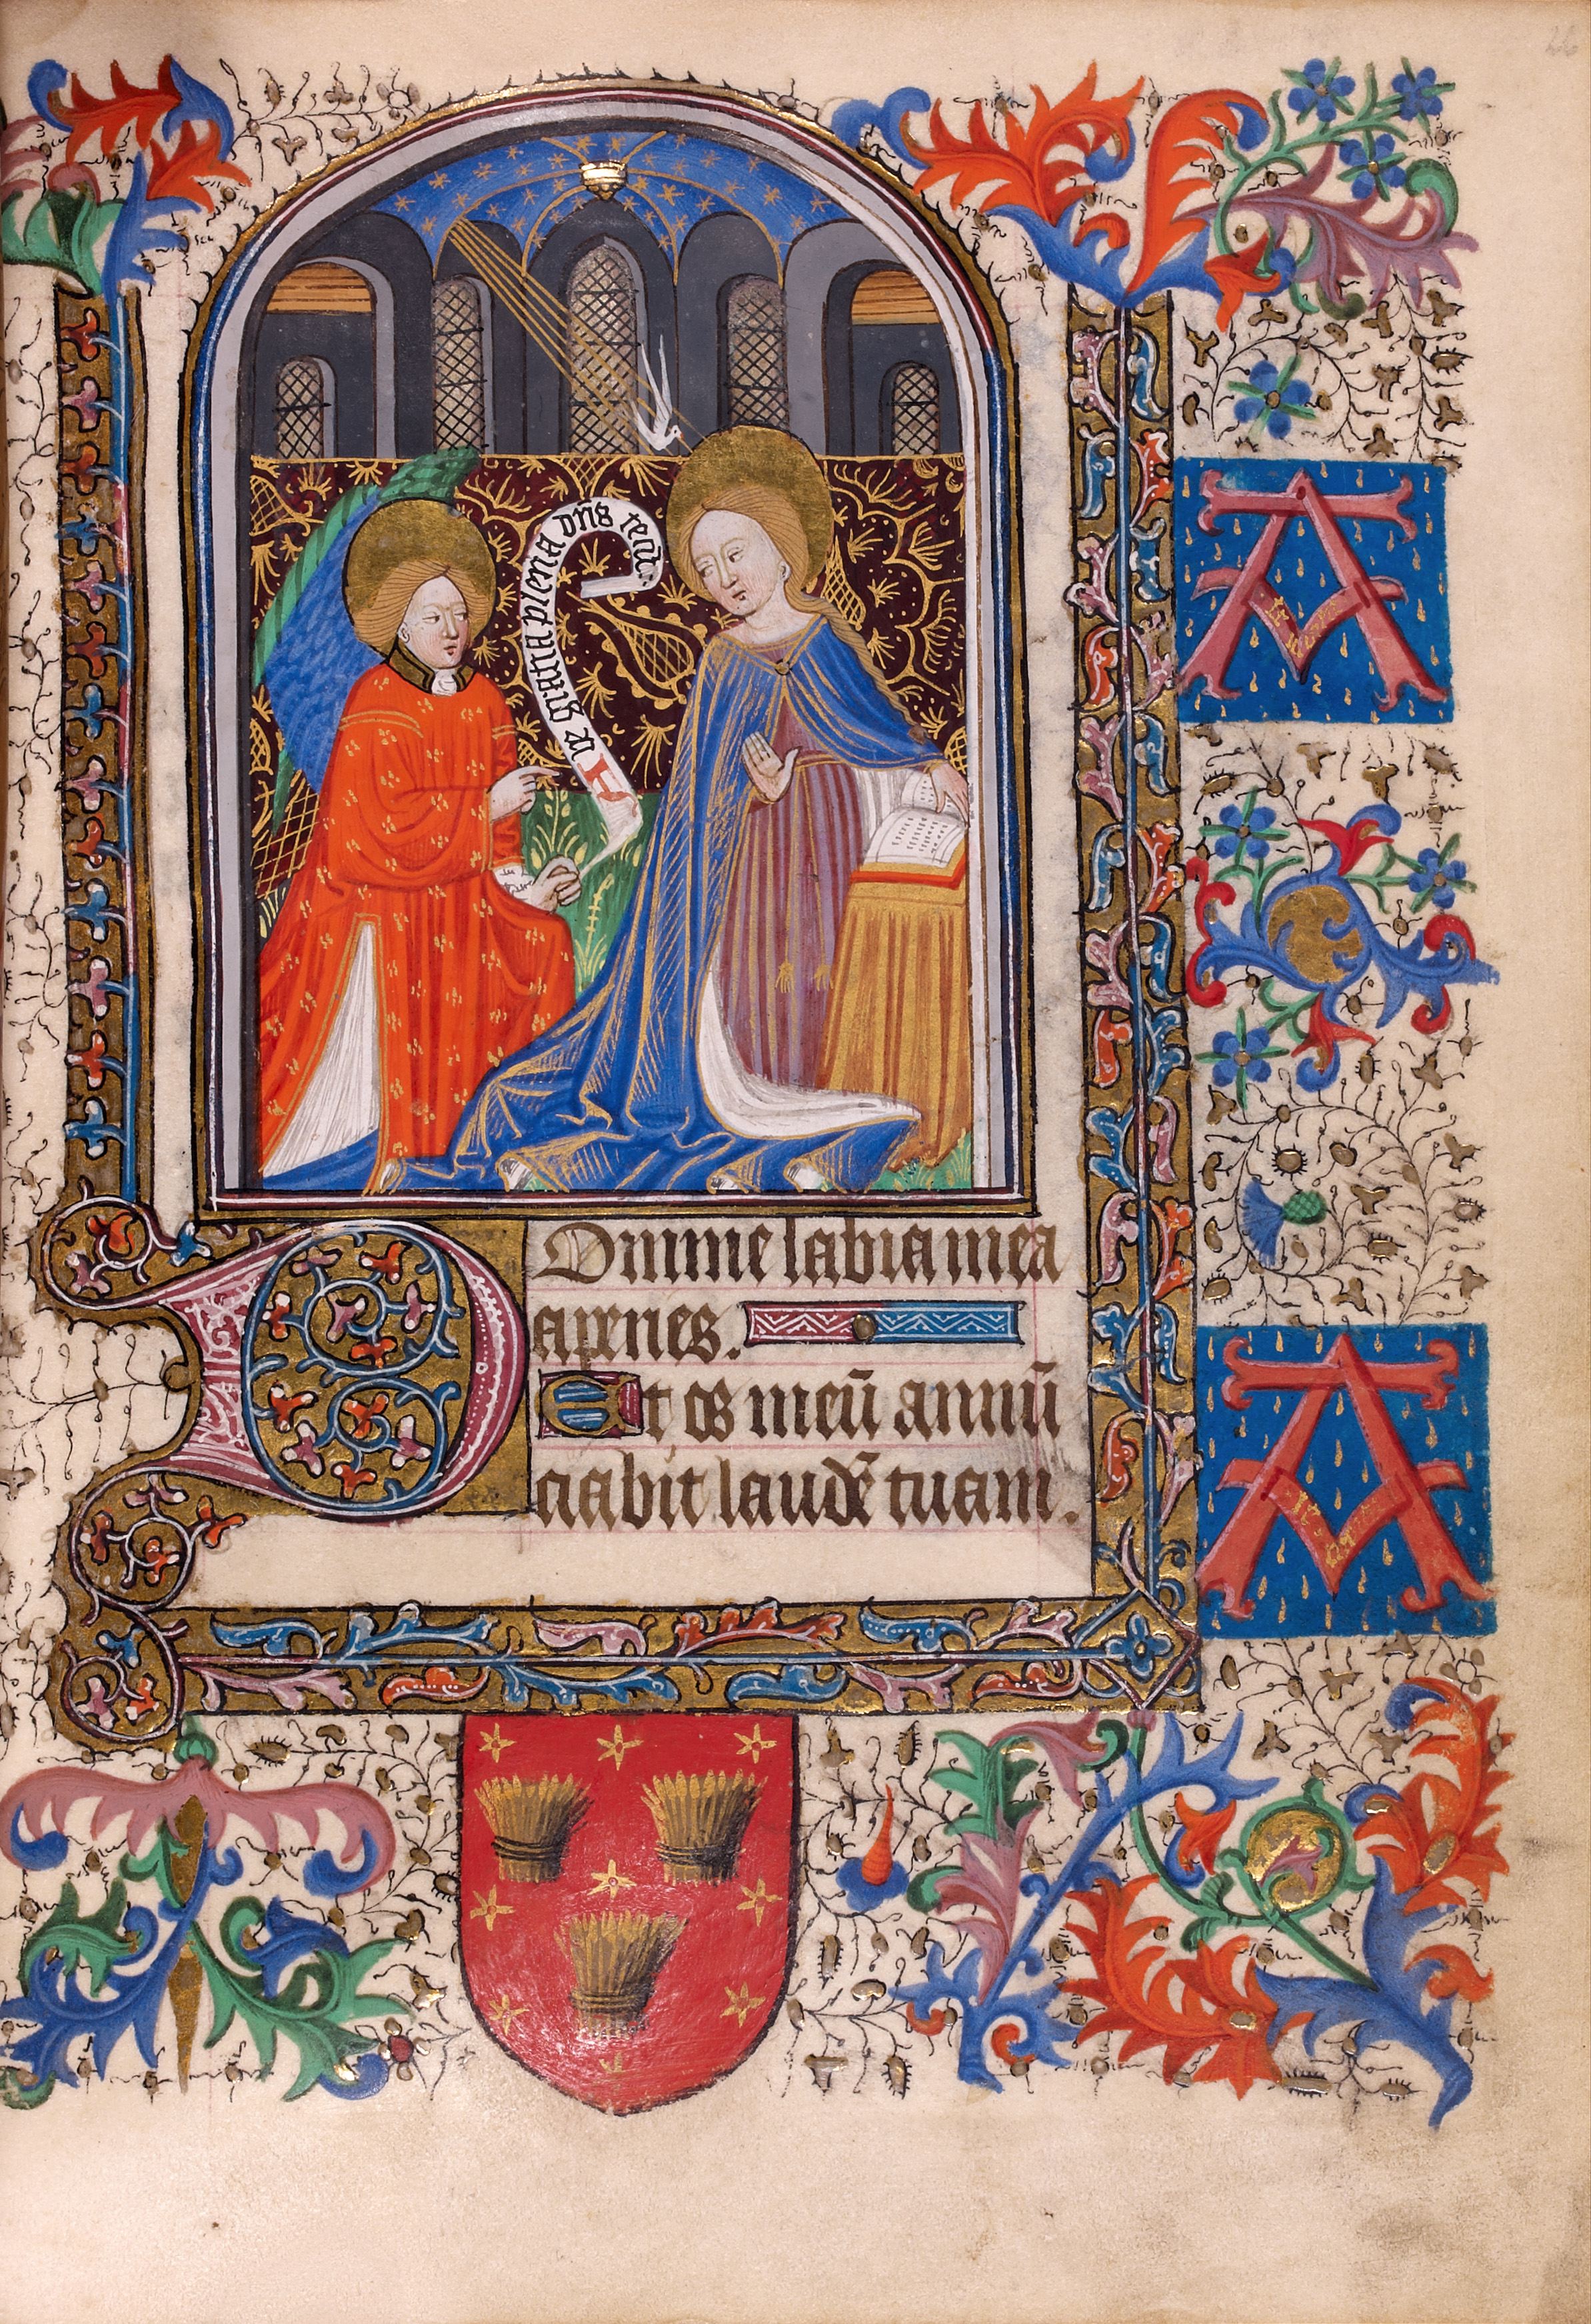 Aue gratia plena dn̄s tecū
DOmine labia mea
aperies.
Et os meū annū
ciabit laudē tuam.
A
A